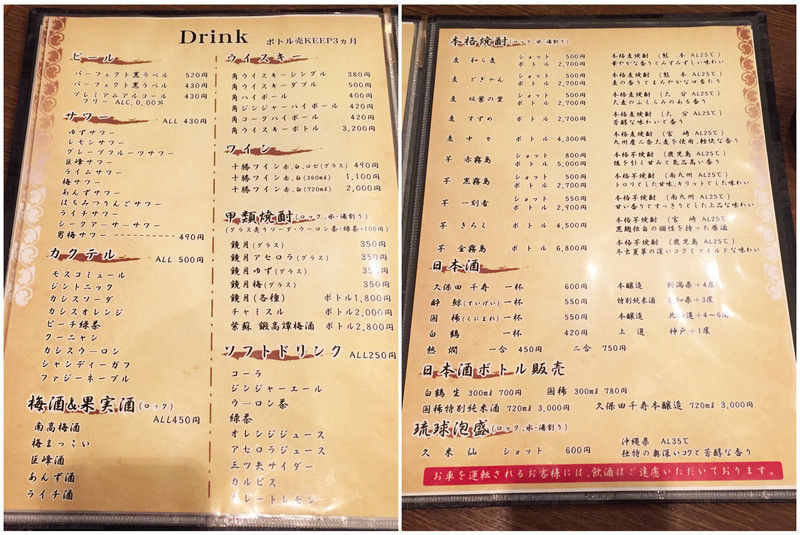 Drink ボトル売KEEP3ヵ月
ビール
パーフェクト黒ラベル 520円
パーフェクト黒ラベル 430円
プレミアムアルコール 430円
フリア ALC,0,00%
サワー ALL 430円
ゆずサワー
レモンサワー
グレープフルーツサワー
巨峰サワー
ライムサワー
梅サワー
あんずサワー
はちみつりんごサワー
ライチサワー
シークアーサーサワー
男梅サワー 490円
カクテル ALL 500円
モスコミュール
ジントニック
カシスソーダ
カシスオレンジ
ピーチ緑茶
クーニャン
カシスウーロン
シャンディーガフ
ファジーネーブル
梅酒&果実酒(ロック)
ALL450円
南高梅酒
梅まっこい
巨峰酒
あんず酒
ライチ酒
ウイスキー
角ウイスキーシングル 380円
角ウイスキーダブル 500円
角ハイボール 400円
角ジンジャーハイボール 420円
角コークハイボール 420円
角ウイスキーボトル 3,200円
ワイン
十勝ワイン赤,白,ロゼ(グラス) 490円
十勝ワイン赤,白(360ml) 1,100円
十勝ワイン赤,白(720ml) 2,000円
甲類焼酎(ロック、水・湯割り)
(グラス売りソーダ・ウーロン茶・緑茶+100円)
鏡月(グラス) 350円
鏡月アセロラ(グラス) 350円
鏡月ゆず(グラス) 350円
鏡月梅(グラス) 350円
鏡月(各種) ボトル1,800円
チャミスル ボトル2,000円
紫蘇 鍛高譚梅酒 ボトル2,800円
ソフトドリンク ALL250円
コーラ
ジンジャーエール
ウーロン茶
緑茶
オレンジジュース
アセロラジュース
三ツ矢サイダー
カルピス
レートレモン
本格焼酎(ロック、水・湯割り)
麦 和ら麦 ショット 500円 本格麦焼酎 (熊 本 AL25℃)
ボトル 2,700円 華やかな香りとみずみずしい味わい
麦 どぎゃん ショット 500円 本格麦焼酎 (熊 本 AL25℃)
ボトル 2,700円 麦の香りとまろやかな口当たり
麦 双葉の里 ショット 500円 本格麦焼酎 (大 分 AL25℃)
ボトル 2,700円 大麦のふくらみのある香り
麦 すずめ ショット 500円 本格麦焼酎 (大 分 AL25℃)
ボトル 2,700円 芳醇な味わいと香り
麦 中々 ボトル 4,300円 本格麦焼酎 (宮 崎 AL25℃)
九州産二条大麦を使用、軽快な香り
芋 赤霧島 ショット 800円 本格芋焼酎 (鹿児島 AL25℃)
ボトル 5,000円 後を引く甘みと気品高い香り
芋 黒霧島 ショット 500円 本格芋焼酎 (南九州 AL25℃)
ボトル 2,700円 トロリとした甘味、キリッとした味わい
芋 一刻者 ショット 550円 本格芋焼酎 (南九州 AL25℃)
ボトル 2,900円 甘い香りとすっきりとした上品な味わい
芋 きろく ボトル 4,500円 本格芋焼酎 (宮 崎 AL25℃)
黒麹独自の個性を持った原酒
芋 金霧島 ボトル 6,800円 本格芋焼酎 (鹿児島 AL25℃)
冬虫夏草の深いコクとマイルドな味わい
日本酒
久保田 千寿 一杯 600円 本醸造 新潟県+4度
酔 鯨(すいげい) 一杯 550円 特別純米酒 高知県+3度
国 稀(くにまれ) 一杯 550円 本醸造 北海道+4~6度
白 鶴 一杯 420円 上 選 神戸+1度
熱 燗 一合 450円 二合 750円
日本酒ボトル販売
白鶴 生 300ml 700円 国稀 300ml 780円
国稀特別純米酒 720ml 3,000円 久保田千寿本醸造 720ml 3,000円
琉球泡盛(ロック、水・湯割り)
久 米 仙 ショット 600円 沖縄県 AL35℃
独特の奥深いコクと芳醇な香り
お車を運転されるお客様には、飲酒はご遠慮いただいております。